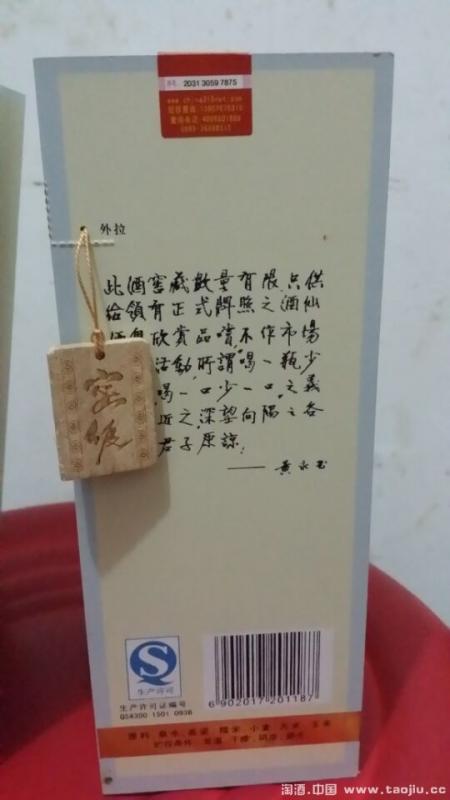 2031 3059 7875
外拉
此酒窖藏數量有限,只供
給領有正式牌照之酒仙
欣賞品嚐,不作市場
活動,所謂喝一瓶少
喝一口少一口之義
近之深望向隅之各
君子原諒
—— 黄永玉
QS
生产许可
生产许可证编号
QS4300 1501 0936
6 902017 201187
淘酒.中国 www.taojiu.cc